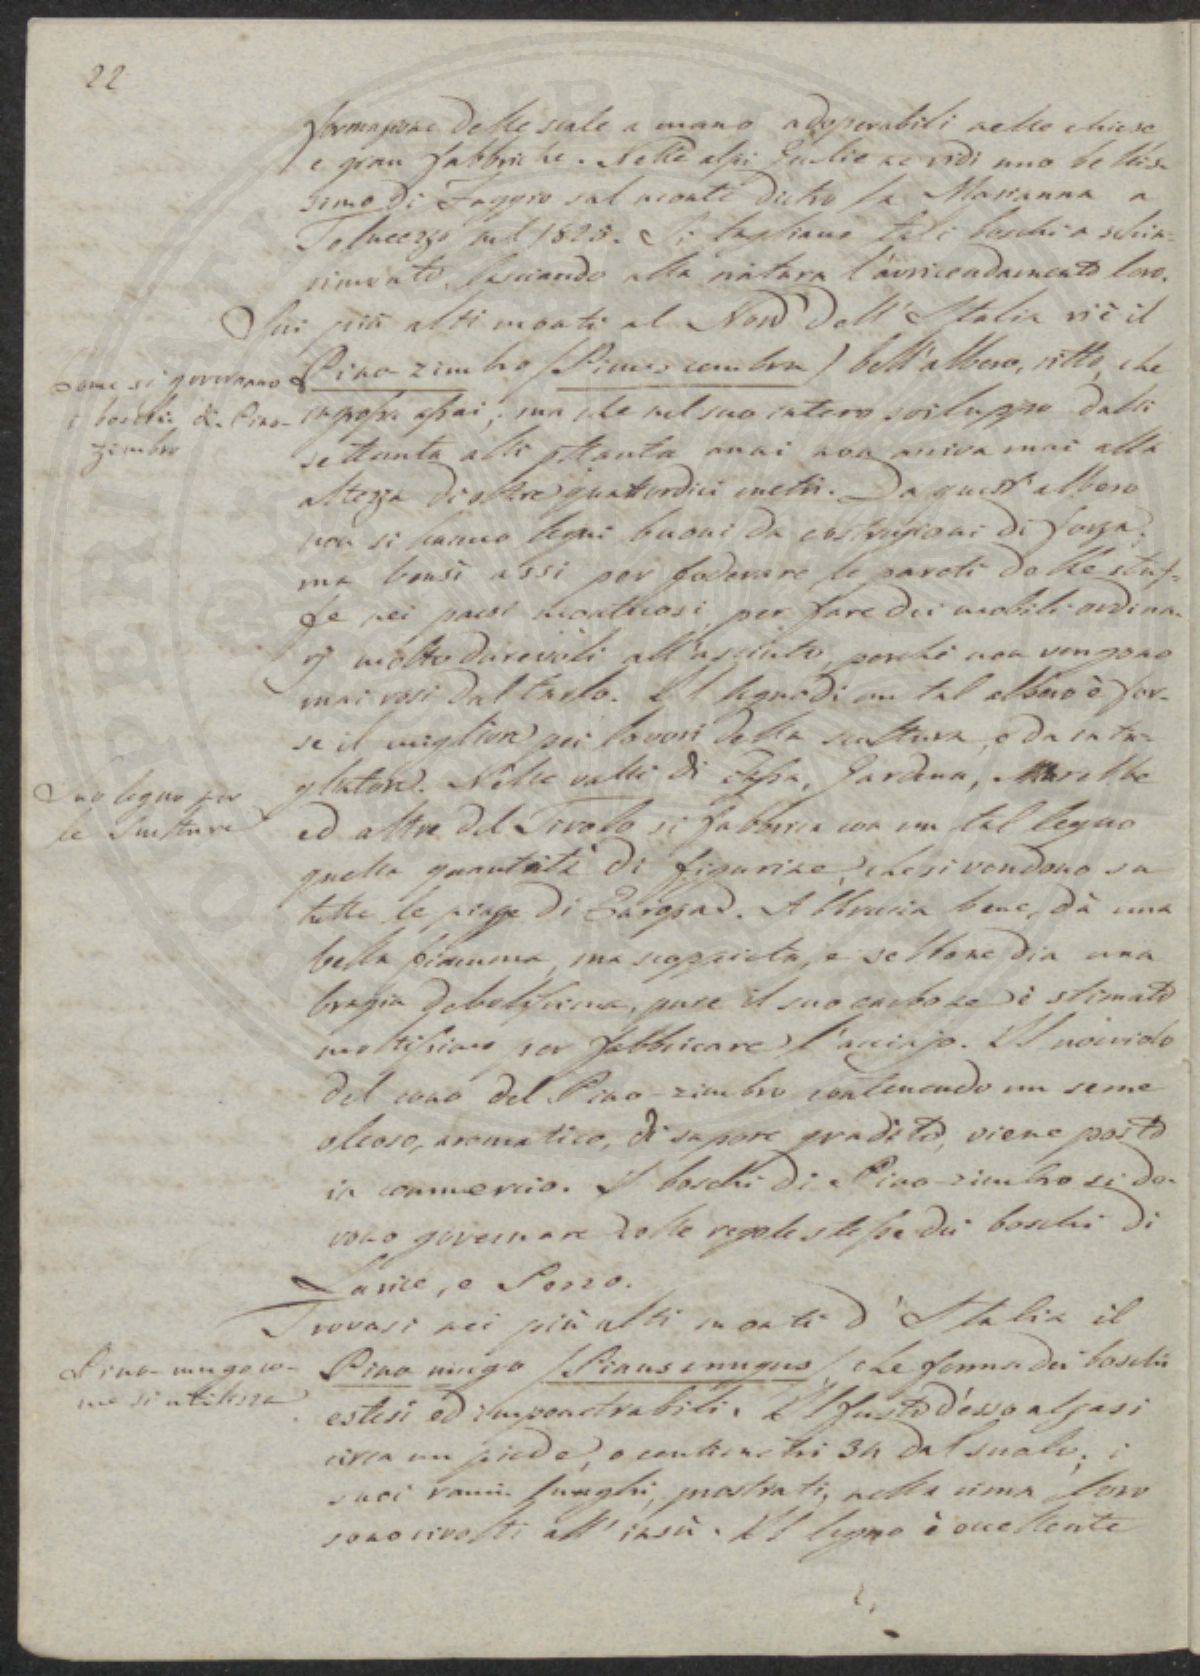 22
formazione delle scale a mano adoperabili nelle chiese
e gran fabbriche. Nelle alpi Giulie ne vidi uno bellis-
simo di Faggio sul monte dietro la Marianna a
Tolmezzo nel 1828. Si tagliano tali boschi a schia-
rimento, lasciando alla natura l'avvicendamento loro.
Sui più alti monti al Nord dell'Italia vi è il
Come si governano
i boschi di Pino-
zimbro
Pino zimbro (Pinus cembra) bell'albero, ritto, che
ingrossa assai; ma che nel suo intero sviluppo dalli
settanta alli ottanta anni non arriva mai alla
altezza di oltre quatordici metri. Da quest'albero
non si hanno legni buoni da costruzioni di forza;
ma bensì assi per foderare le pareti delle stuf-
fe nei paesi montuosi, per fare dei mobili ordina-
rj molto durevoli all'asciutto, perchè non vengono
mai rosi dal tarlo. Il legno di un tal albero è for-
se il migliore pei lavori della scultura, e da inta-
Suo legno per
le Sculture
gliatore. Nelle valli di Fassa, Gardena, Marebbe
ed altre del Tirolo si fabbrica con un tal legno
quella quantità di figurine, che si vendono su
tutte le piazze di Europa. Abbrucia bene, dà una
bella fiamma, ma scoppieta, e sebbene dia una
bragia debolissima, pure il suo carbone è stimato
moltissimo per fabbricare l'acciajo. Il nocciolo
del cono del Pino-zimbro contenendo un seme
oleoso, aromatico, di sapore gradito, viene posto
in commercio. I boschi di Pino-zimbro si de-
vono governare colle regole stesse dei boschi di
Larice, e Pezzo.
Trovasi nei più alti monti d'Italia il
Pino-mugo co-
me si utilizza
Pino mugo (Pinus mugus) che forma dei boschi
estesi ed impenetrabili. Il fusto d'esso alzasi
circa un piede, o centimetri 34 dal suolo; i
suoi rami lunghi, prostrati, nella cima loro
sono rivolti all'insù. Il legno è eccellente